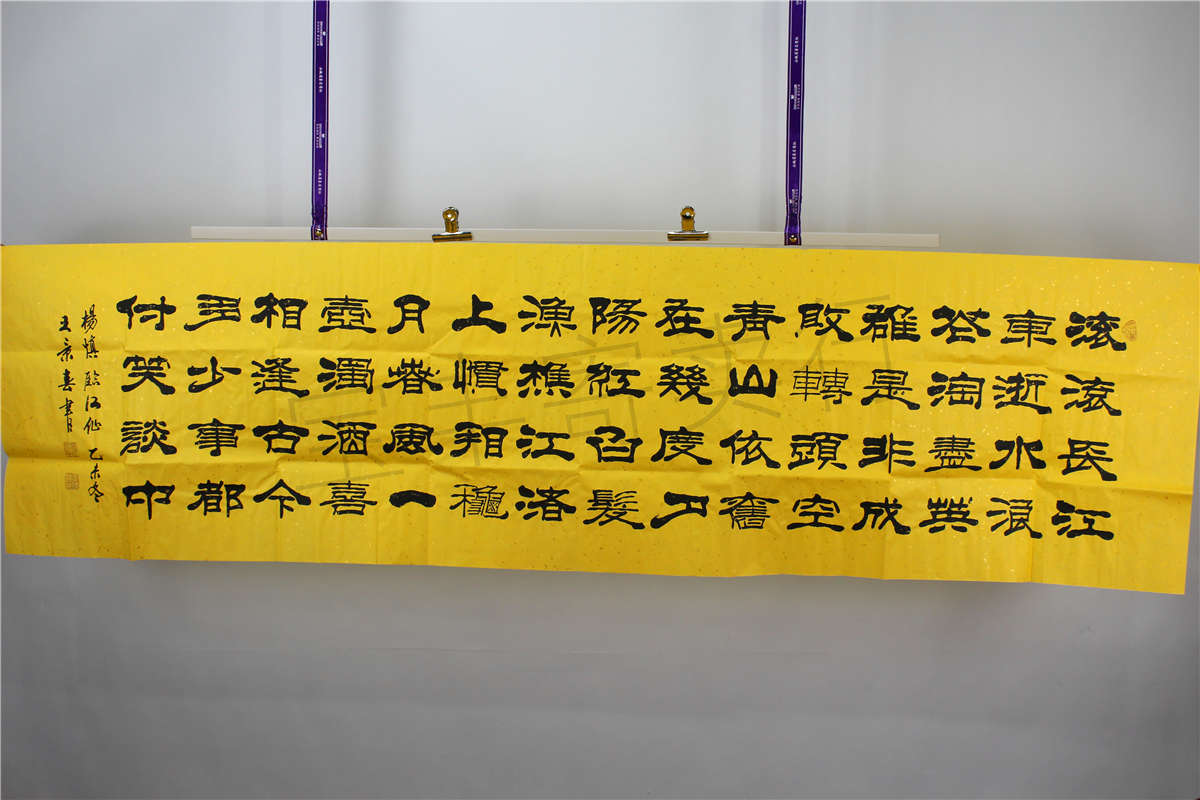 滚滚長江
東逝水浪
花淘盡英
雄是非成
敗轉頭空
青山依舊
在幾度夕
陽紅白髮
漁樵江渚
上慣看穐
月春風一
壺濁酒喜
相逢古今
多少事都
付笑談中
楊慎臨江仙 乙未冬
王景春書